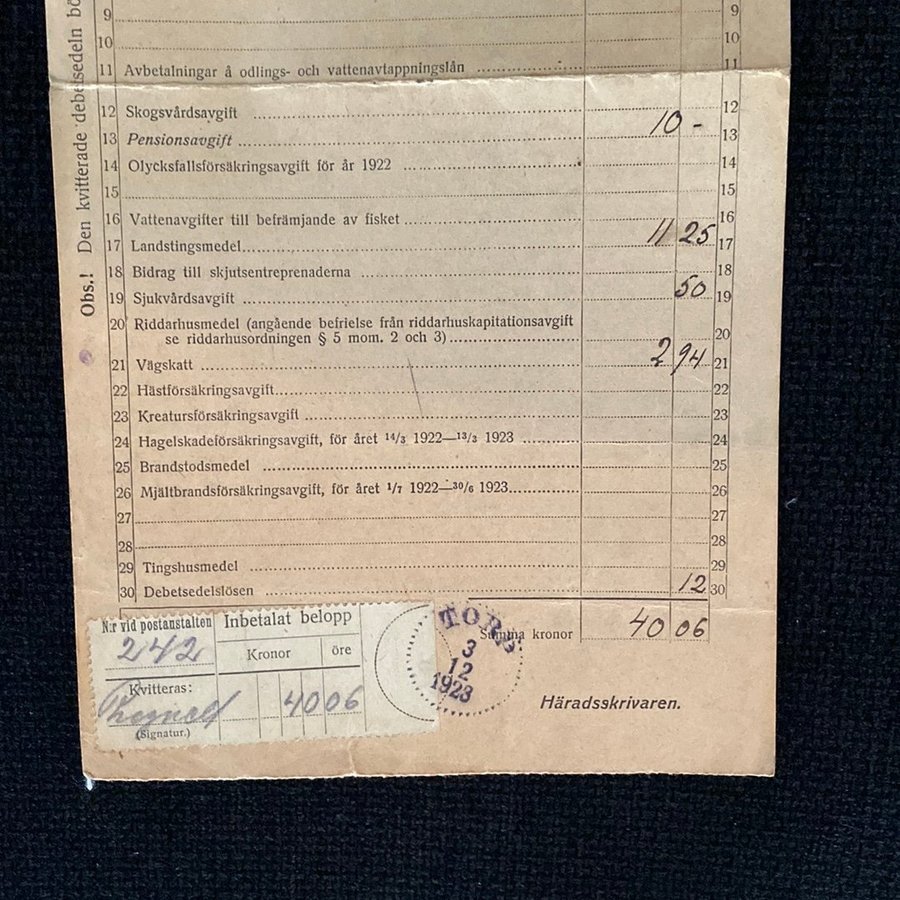 Obs.! Den kvitterade debetsedeln bö
9 9
10 10
11 Avbetalningar å odlings- och vattenavtappningslån 11
12 Skogsvårdsavgift 12
13 Pensionsavgift 10 - 13
14 Olycksfallsförsäkringsavgift för år 1922 14
15 15
16 Vattenavgifter till befrämjande av fisket 16
17 Landstingsmedel 11 25 17
18 Bidrag till skjutsentreprenaderna 18
19 Sjukvårdsavgift 50 19
20 Riddarhusmedel (angående befrielse från riddarhuskapitationsavgift
se riddarhusordningen § 5 mom. 2 och 3) 20
21 Vägskatt 2 94 21
22 Hästförsäkringsavgift 22
23 Kreatursförsäkringsavgift 23
24 Hagelskadeförsäkringsavgift, för året 14/3 1922—13/3 1923 24
25 Brandstodsmedel 25
26 Mjältbrandsförsäkringsavgift, för året 1/7 1922—30/6 1923 26
27 27
28 28
29 Tingshusmedel 29
30 Debetsedelslösen 12 30
Summa kronor 40 06
N:r vid postanstalten
242
Inbetalat belopp
Kronor öre
Kvitteras:
40 06
(Signatur.)
TORP
3
12
1923
Häradsskrivaren.